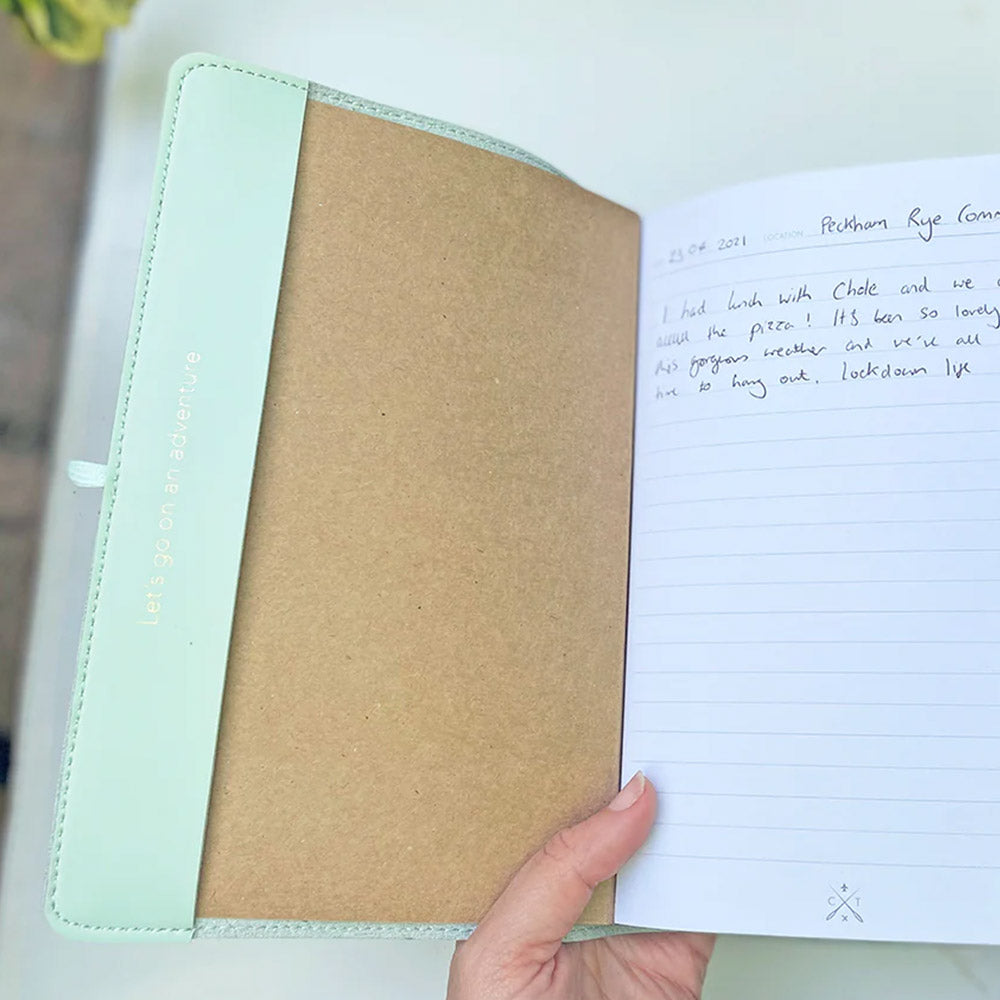 Let's go on an adventure
23 2021 LOCATION Peckham Rye Comm
I had lunch with Chole and we
the pizza! It's been so lovely
this gorgeous weather and we've all
time to hang out. Lockdown life
C T